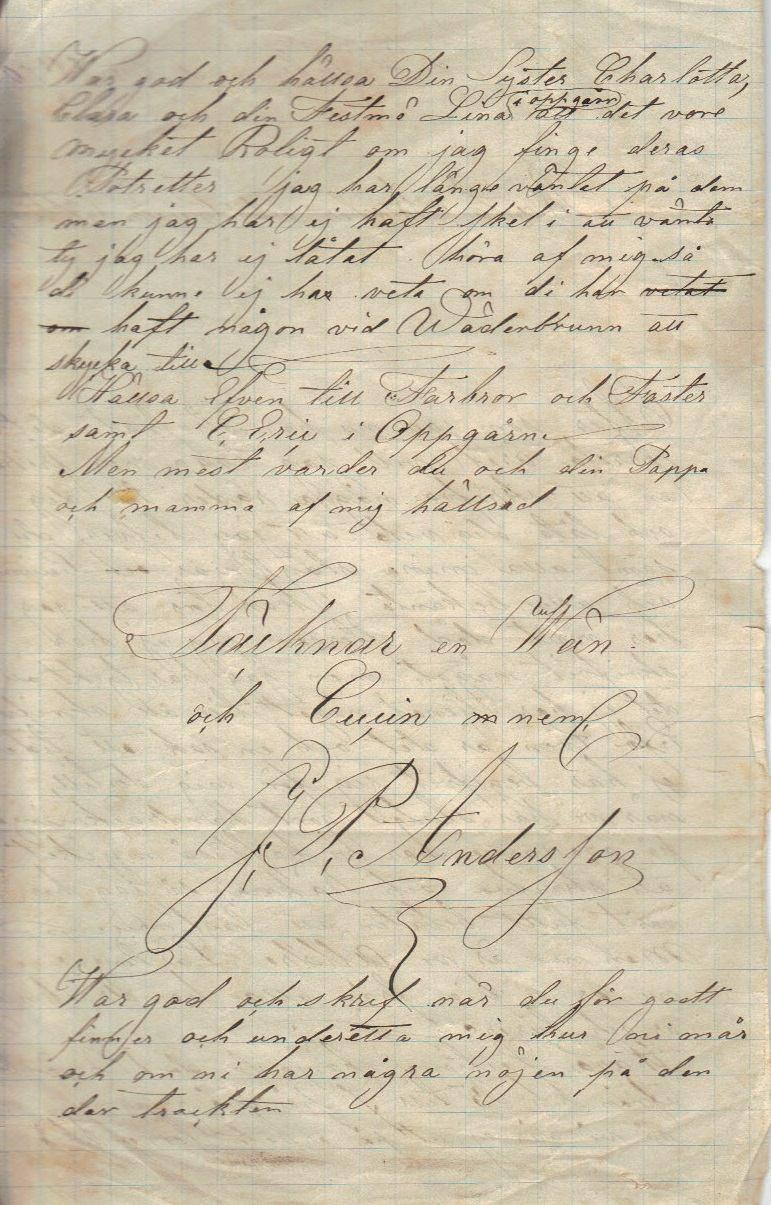 War god och hälsa Din Syster Charlotta,
Clara och din Festmö Lina (i oppgårn) att det vore
mycket Roligt om jag finge deras
Potretter jag har länge väntat på dem
men jag har ej haft skel i att vänta
ty jag har ej låtat höra af mig så
di kunne ej har veta om di har vetat
om haft någon vid Wäderbrunn att
skycka till
Hälsa Efven till Farbror och Faster
samt C, Eric i Oppgårn
Men mest varder du och din Pappa
och mamma af mig hällsad
Täcknar en Wän
och Cusin m nem
J, P, Andersson
War god och skrif när du för godt
finner och underetta mig hur ni mår
och om ni har några nöjen på den
dar trackten